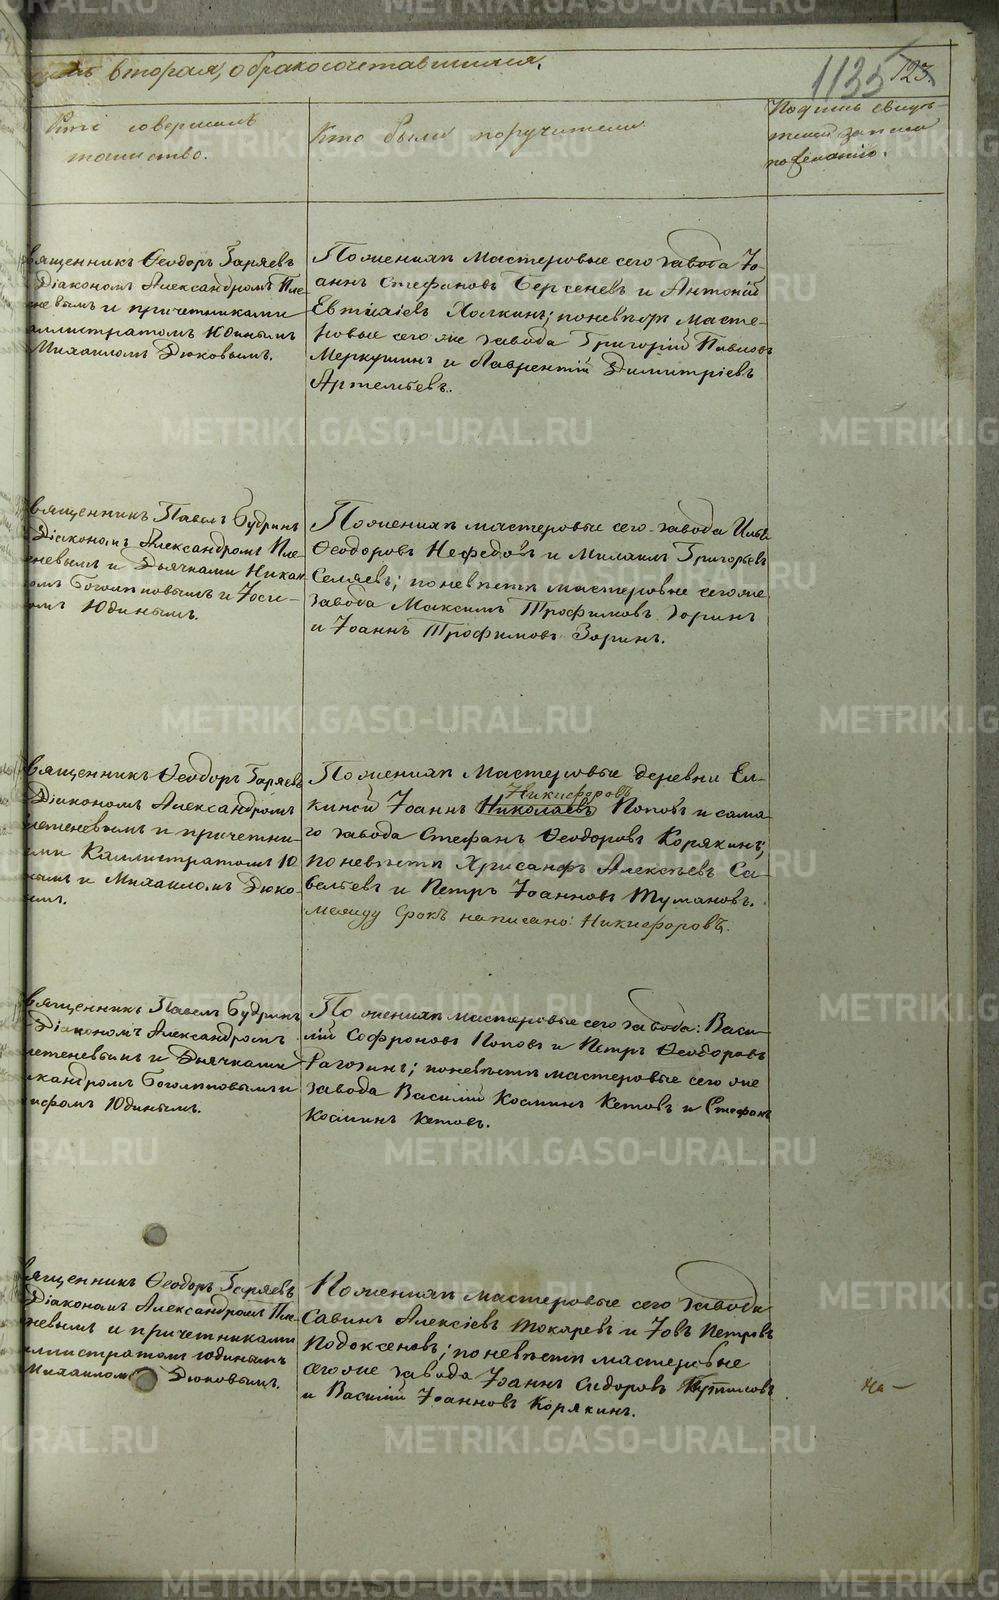 часть вторая, о бракосочетавшихся.
1135 123.
Кто совершалъ
таинство.
Кто были поручители
Подпись свидѣ-
телей записи
по желанію.
вященникъ Ѳеодоръ Гаряевъ
Діакономъ Александромъ Пле-
невымъ и причетниками
аллистратомъ Юдинымъ
Михаиломъ Дюковымъ.
По женихѣ мастеровые сего завода Іо-
аннъ Стефановъ Берсеневъ и Антоній
Евтихіевъ Холкинъ; по невѣстѣ масте-
ровые сего же завода Григорій Павловъ
Меркушинъ и Лаврентій Димитріевъ
Артемьевъ.
вященникъ Павелъ Будринъ
Діакономъ Александромъ Пле-
еневымъ и Дьячками Никан-
омъ Боголѣповымъ и Іоси-
омъ Юдинымъ.
По женихѣ мастеровые сего завода Илья
Ѳеодоровъ Нефедовъ и Михаилъ Григорьевъ
Селяевъ; по невѣстѣ мастеровые сего же
завода Максимъ Трофимовъ Зоринъ
и Іоаннъ Трофимовъ Зоринъ.
вященникъ Ѳеодоръ Гаряевъ
Діакономъ Александромъ
летеневымъ и причетни-
ами Каллистратомъ Ю
нымъ и Михаиломъ Дюко-
ымъ.
По женихѣ мастеровые деревни Ел-
Никифоровъ
киной Іоаннъ Николаевъ Поповъ и сама-
го завода Стефанъ Ѳеодоровъ Корякинъ;
по невѣстѣ Хрисанфъ Алексѣевъ Са-
вельевъ и Петръ Іоанновъ Тумановъ.
между срокъ написано: Никифоровъ.
вященникъ Павелъ Будринъ
Діакономъ Александромъ
летеневымъ и Дьячками
икандромъ Боголѣповымъ и
осифомъ Юдинымъ.
По женихѣ мастеровые сего завода: Васи-
лій Софроновъ Поповъ и Петръ Ѳеодоровъ
Рагозинъ; по невѣстѣ мастеровые сего же
завода Василій Косминъ Кетовъ и Стефанъ
Косминъ Кетовъ.
вященникъ Ѳеодоръ Гаряевъ
Діакономъ Александромъ Пле-
невымъ и причетниками
ллистратомъ Юдинымъ
Михаиломъ Дюковымъ.
По женихѣ мастеровые сего завода
Савинъ Алексіевъ Токаревъ и Іовъ Петровъ
Подоксеновъ; по невѣстѣ мастеровые
сего же завода Іоаннъ Сидоровъ
и Василій Іоанновъ Корякинъ.
На —
METRIKI.GASO-URAL.RU